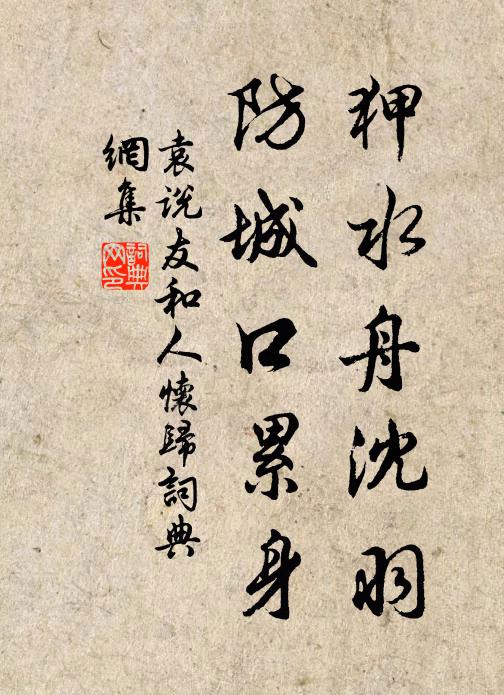 狎水舟沈羽
防城口累身
袁说友和人懷歸詞典
網集
詞典
网印